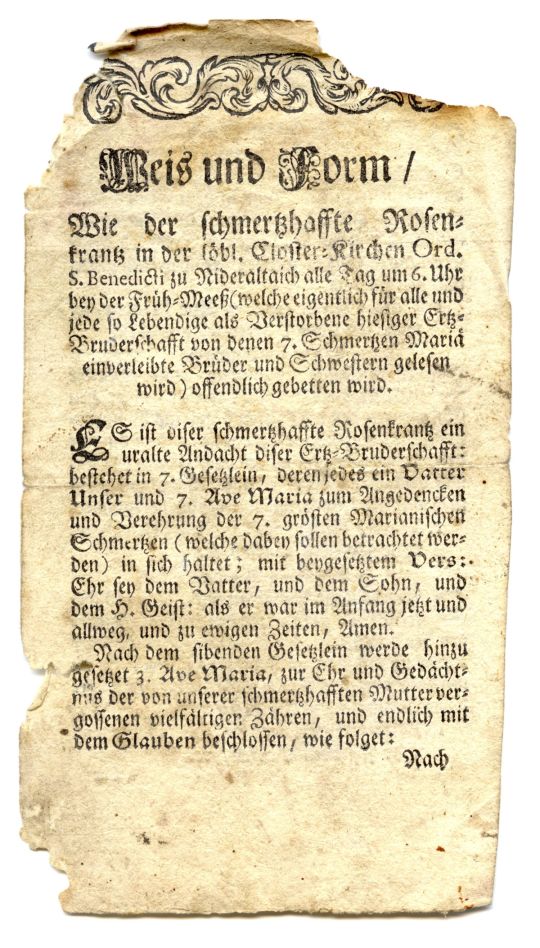 Weis und Form /
Wie der schmertzhaffte Rosen-
krantz in der löbl. Closter-Kirchen Ord.
S. Benedicti zu Nideraltaich alle Tag um 6. Uhr
bey der Früh-Meeß (welche eigentlich für alle und
jede so Lebendige als Verstorbene hiesiger Ertz-
Bruderschafft von denen 7. Schmertzen Mariä
einverleibte Brüder und Schwestern gelesen
wird) offendlich gebetten wird.
ES ist diser schmertzhaffte Rosenkrantz ein
uralte Andacht diser Ertz-Bruderschafft:
bestehet in 7. Gesetzlein, deren jedes ein Vatter
Unser und 7. Ave Maria zum Angedencken
und Verehrung der 7. grösten Marianischen
Schmertzen (welche dabey sollen betrachtet wer-
den) in sich haltet; mit beygesetztem Vers:
Ehr sey dem Vatter, und dem Sohn, und
dem H. Geist: als er war im Anfang jetzt und
allweg, und zu ewigen Zeiten, Amen.
Nach dem sibenden Gesetzlein werde hinzu
gesetzet 3. Ave Maria, zur Ehr und Gedächt-
nus der von unserer schmertzhafften Mutter ver-
gossenen vielfältigen Zähren, und endlich mit
dem Glauben beschlossen, wie folget:
Nach